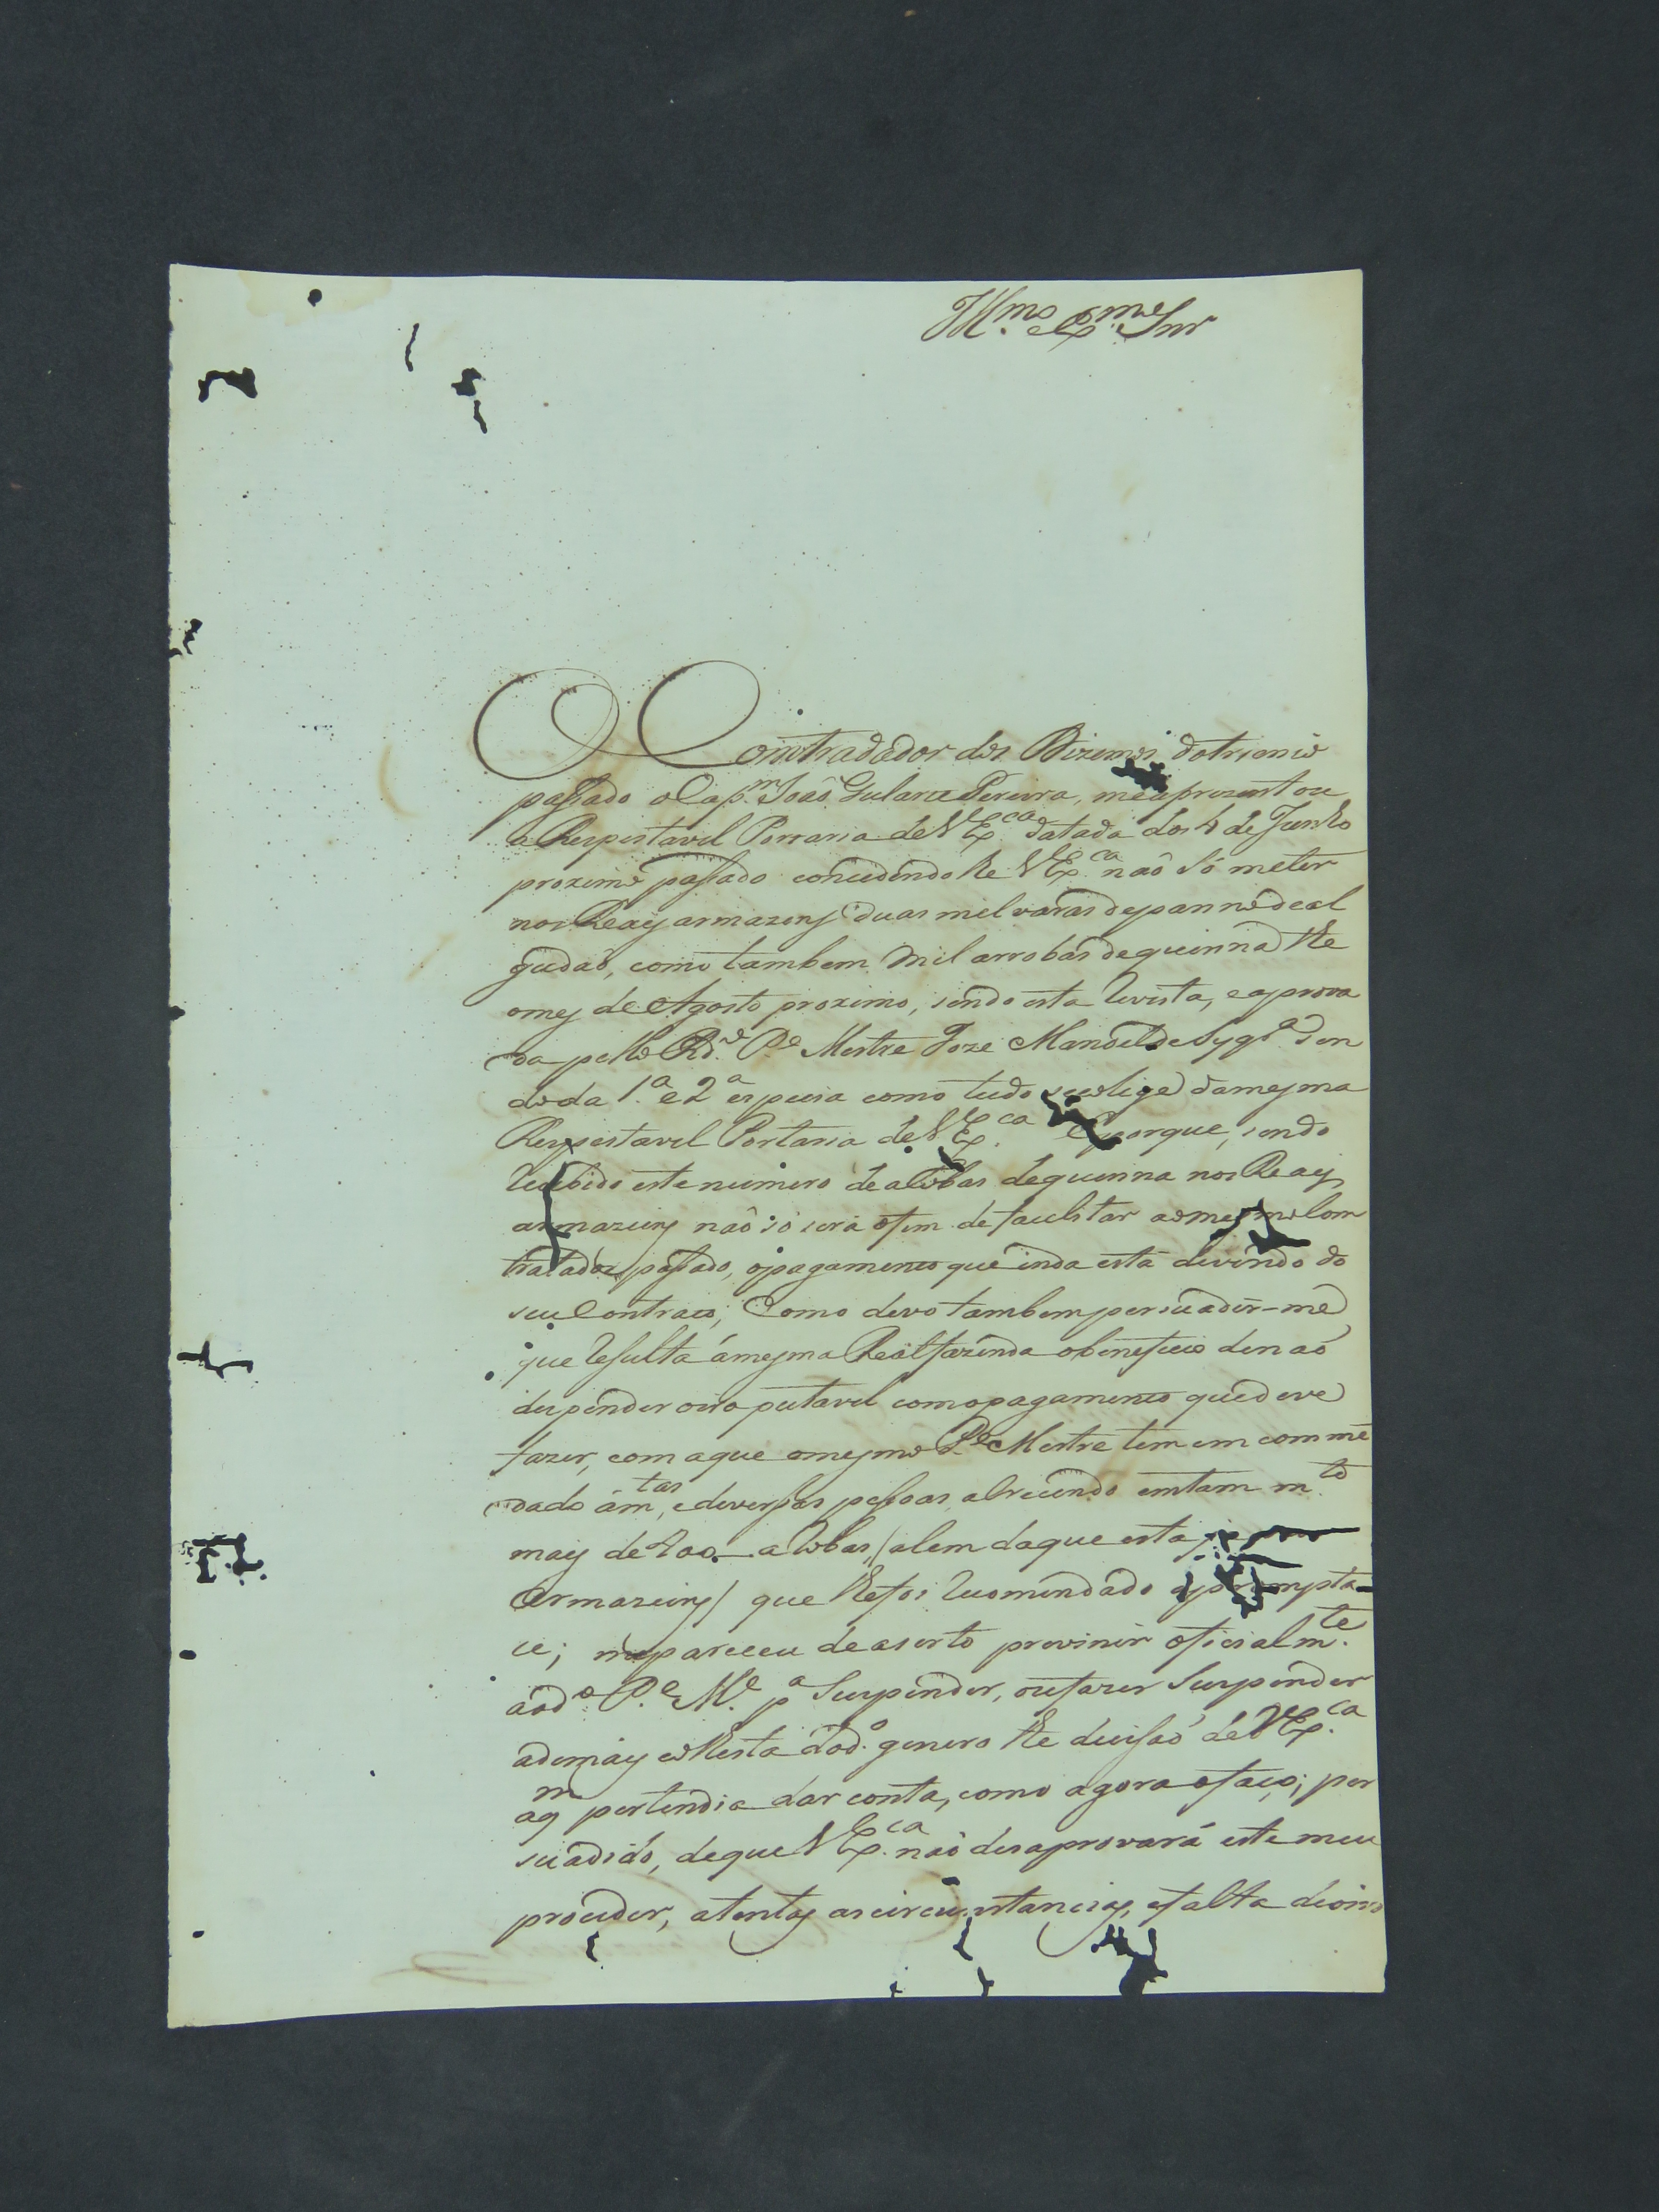 Ill.mo e Ex.mo Snr
O Contradador dos Dizimos do trienio
passado o Cap.m João Gularte Pereira, me aprezentou
a Respeitavel Portaria de V Ex.ca datada dos 4 de Junho
proximo passado concedendo lhe V Ex.ca não só meter
nos Reays armazens duas mil varas de panno de al
gudão, como tambem mil arrobas de quinna the
o mes de Agosto proximo, sendo esta revista, e aprova
da pello R.do P.e Mestre Joze Manoel de Syq.ra sen
do da 1.a e 2.a especia como tudo se colige da mesma
Respeitavel Portaria de V Ex.ca E porque, sendo
recebido este numero de arobas de quinna nos Reays
armazeins não só será o fim de faculitar ao mesmo Com
tratador passado, o pagamento que inda está devendo do
seu Contrato; Como devo tambem persuadir-me
que resulta á mesma Real fazenda o beneficio de não
dispender oiro putavel com o pagamento que deve
fazer, com a que o mesmo P.e Mestre tem em commē
dado á m.tas, e diversas pessoas, alcicendo emtam m.to
mais de 200 arobas, (alem da que esta
Armazeins) que lhe foi recomendado aprompta-
ce; me pareceu de aserto previnir oficialm.te
ao d.o P.e M.e p.a suspender, ou fazer suspender
a demais colheita do d.o genero the decisão de V Ex.ca
a q.m pertendia dar conta, como agora o faço; per
suadido, de que V Ex.ca não desaprovará este meu
proceder, atentas as circunstancias, e falta de oiro